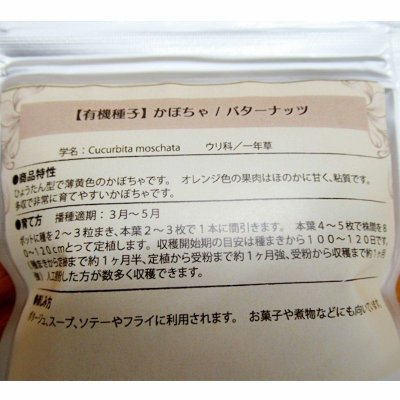 【有機種子】かぼちゃ / バターナッツ
学名：Cucurbita moschata　ウリ科／一年草
●商品特性
ひょうたん型で薄黄色のかぼちゃです。 オレンジ色の果肉はほのかに甘く、粘質です。
多収で非常に育てやすいかぼちゃです。
●育て方　播種適期：3月～5月
ポットに種を2～3粒まき、本葉2～3枚で1本に間引きます。 本葉4～5枚で株間を8
0～120cmとって定植します。収穫開始期の目安は種まきから100～120日です。
(種まきから定植まで約1ヶ月半、定植から受粉まで約1ヶ月強、受粉から収穫まで約1ヶ月
強) 人工授粉した方が数多く収穫できます。
しみ方
ポタージュ、スープ、ソテーやフライに利用されます。 お菓子や煮物などにも向いています。